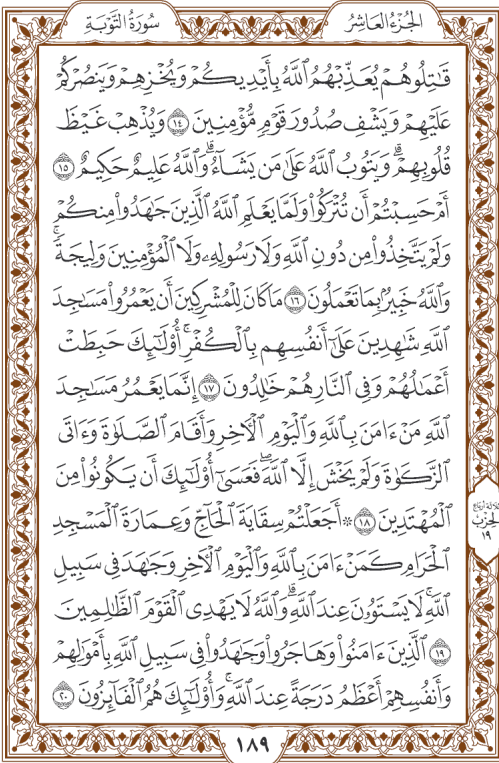 الجُزْءُ العَاشِرُ
سُورَةُ التَّوْبَةِ
قَٰتِلُوهُمْ يُعَذِّبْهُمُ ٱللَّهُ بِأَيْدِيكُمْ وَيُخْزِهِمْ وَيَنصُرْكُمْ
عَلَيْهِمْ وَيَشْفِ صُدُورَ قَوْمٍ مُّؤْمِنِينَ ١٤ وَيُذْهِبْ غَيْظَ
قُلُوبِهِمْۗ وَيَتُوبُ ٱللَّهُ عَلَىٰ مَن يَشَآءُۗ وَٱللَّهُ عَلِيمٌ حَكِيمٌ ١٥
أَمْ حَسِبْتُمْ أَن تُتْرَكُوا۟ وَلَمَّا يَعْلَمِ ٱللَّهُ ٱلَّذِينَ جَٰهَدُوا۟ مِنكُمْ
وَلَمْ يَتَّخِذُوا۟ مِن دُونِ ٱللَّهِ وَلَا رَسُولِهِۦ وَلَا ٱلْمُؤْمِنِينَ وَلِيجَةًۚ
وَٱللَّهُ خَبِيرٌۢ بِمَا تَعْمَلُونَ ١٦ مَا كَانَ لِلْمُشْرِكِينَ أَن يَعْمُرُوا۟ مَسَٰجِدَ
ٱللَّهِ شَٰهِدِينَ عَلَىٰٓ أَنفُسِهِم بِٱلْكُفْرِۚ أُو۟لَٰٓئِكَ حَبِطَتْ
أَعْمَٰلُهُمْ وَفِى ٱلنَّارِ هُمْ خَٰلِدُونَ ١٧ إِنَّمَا يَعْمُرُ مَسَٰجِدَ
ٱللَّهِ مَنْ ءَامَنَ بِٱللَّهِ وَٱلْيَوْمِ ٱلْءَاخِرِ وَأَقَامَ ٱلصَّلَوٰةَ وَءَاتَى
ٱلزَّكَوٰةَ وَلَمْ يَخْشَ إِلَّا ٱللَّهَۖ فَعَسَىٰٓ أُو۟لَٰٓئِكَ أَن يَكُونُوا۟ مِنَ
ٱلْمُهْتَدِينَ ١٨ ۞ أَجَعَلْتُمْ سِقَايَةَ ٱلْحَآجِّ وَعِمَارَةَ ٱلْمَسْجِدِ
ٱلْحَرَامِ كَمَنْ ءَامَنَ بِٱللَّهِ وَٱلْيَوْمِ ٱلْءَاخِرِ وَجَٰهَدَ فِى سَبِيلِ
ٱللَّهِۚ لَا يَسْتَوُۥنَ عِندَ ٱللَّهِۗ وَٱللَّهُ لَا يَهْدِى ٱلْقَوْمَ ٱلظَّٰلِمِينَ
١٩ ٱلَّذِينَ ءَامَنُوا۟ وَهَاجَرُوا۟ وَجَٰهَدُوا۟ فِى سَبِيلِ ٱللَّهِ بِأَمْوَٰلِهِمْ
وَأَنفُسِهِمْ أَعْظَمُ دَرَجَةً عِندَ ٱللَّهِۚ وَأُو۟لَٰٓئِكَ هُمُ ٱلْفَآئِزُونَ ٢٠
ثلاثة أرباع
الحزب
١٩
١٨٩